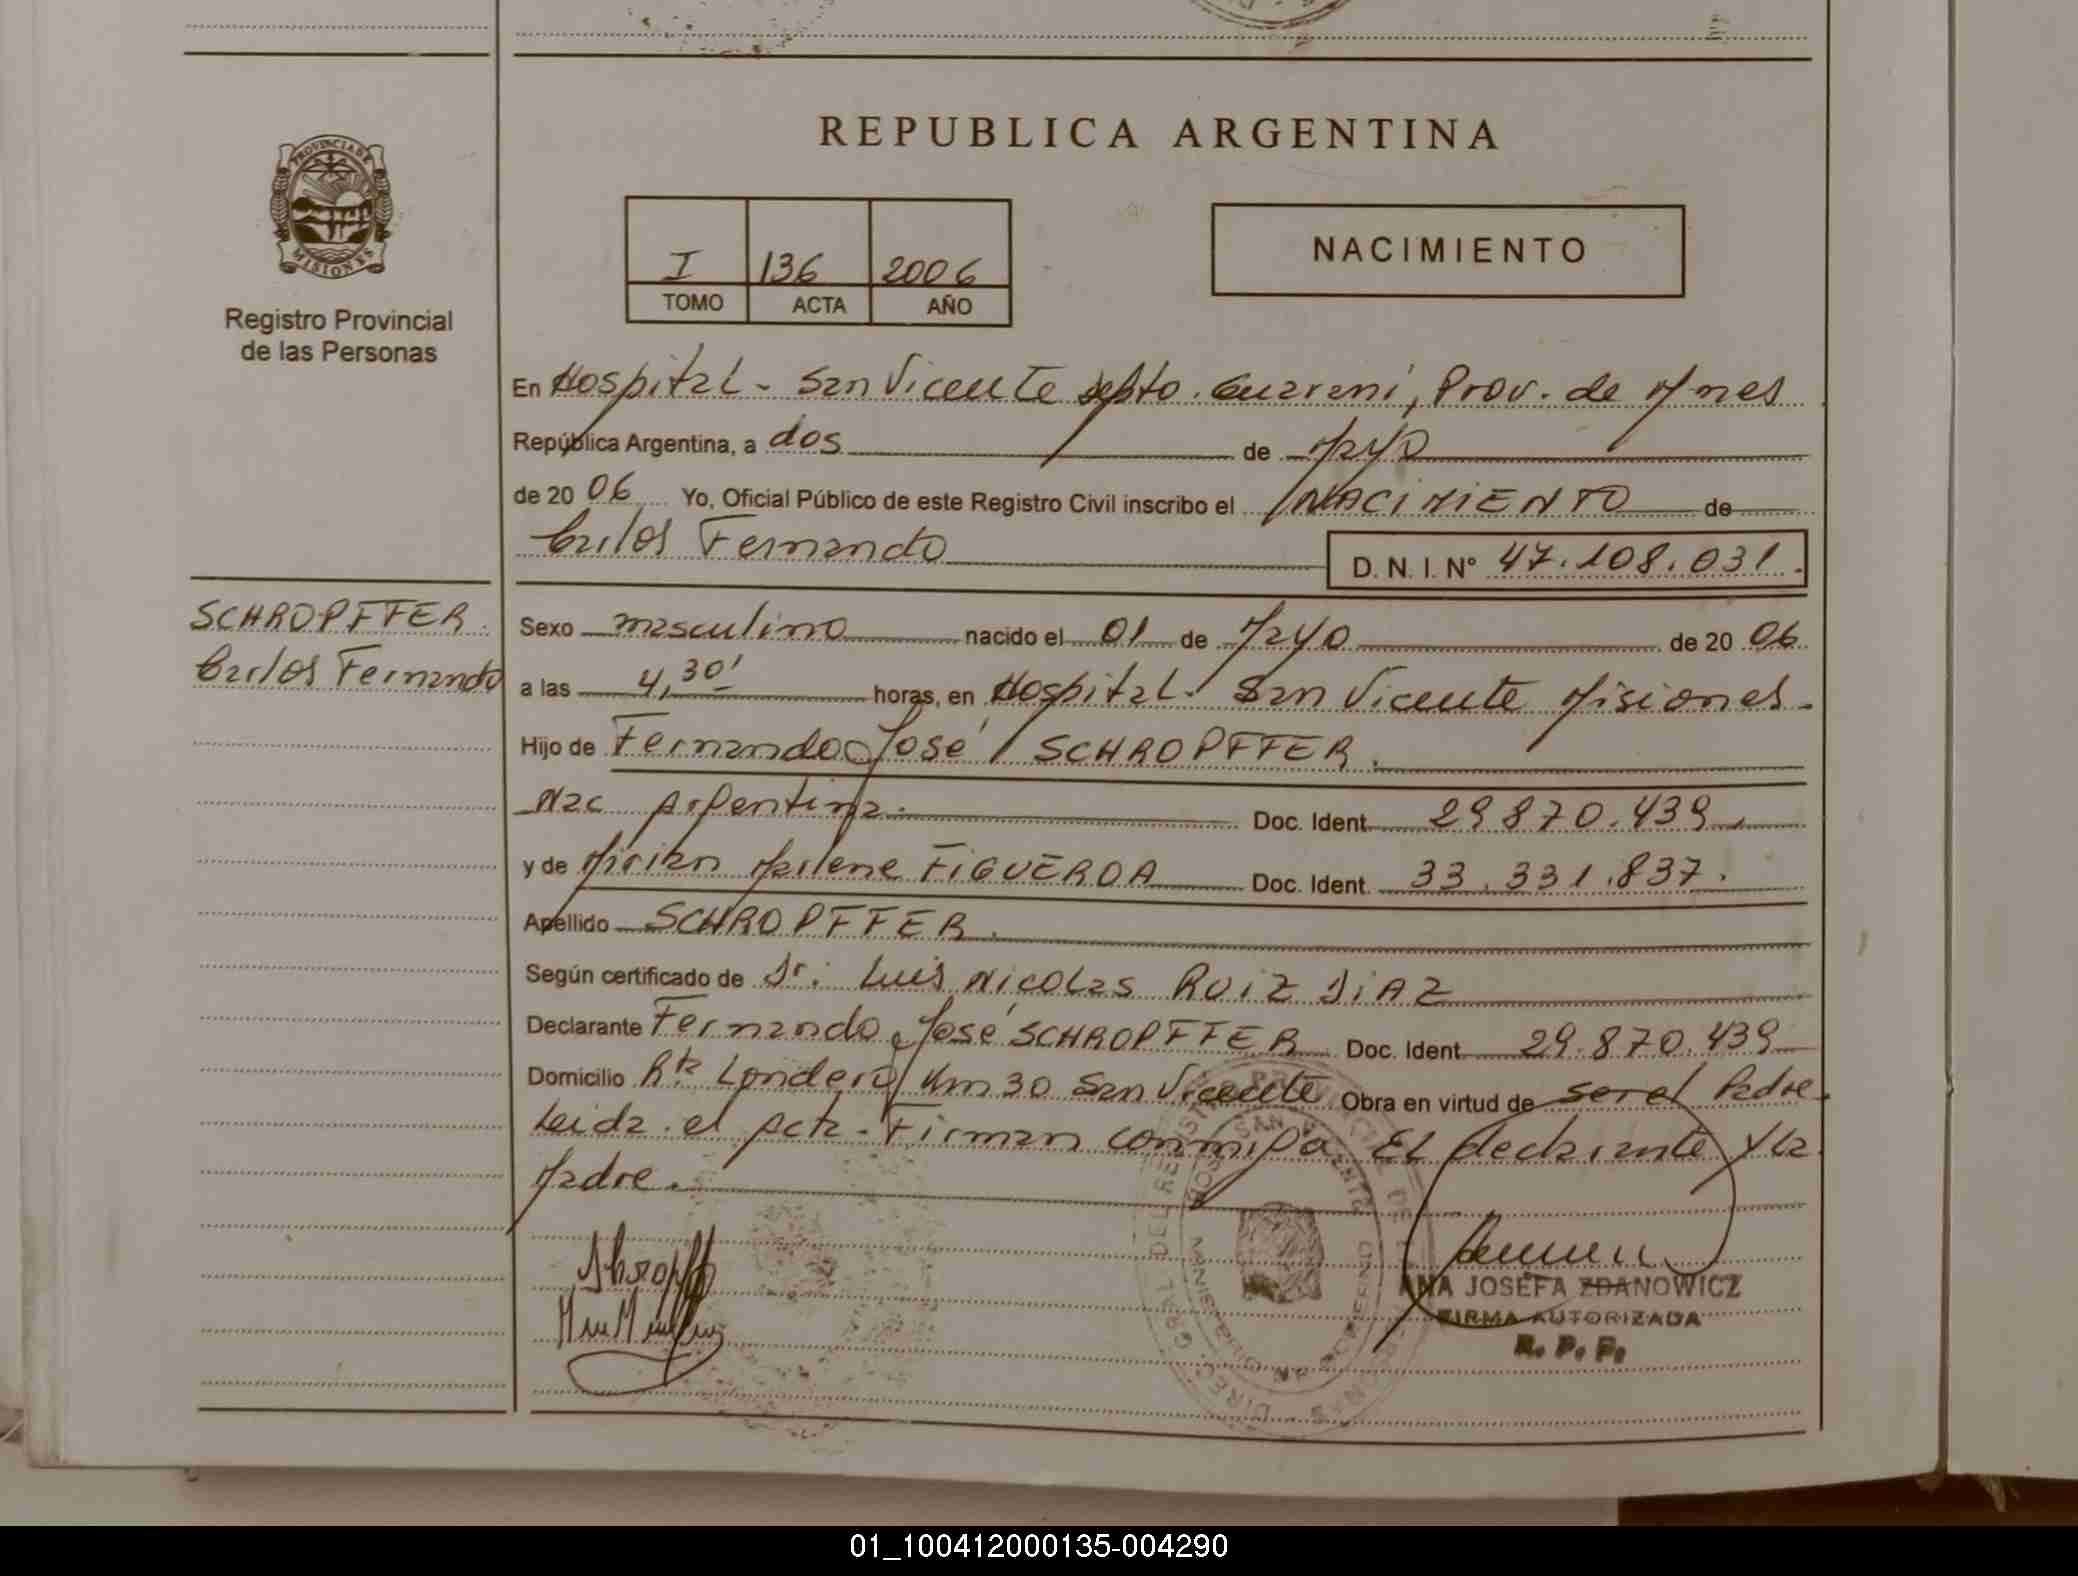 REPUBLICA ARGENTINA
PROVINCIA DE
MISIONES
Registro Provincial
de las Personas
I 136 2006
TOMO ACTA AÑO
NACIMIENTO
En Hospital - San Vicente depto. Guaraní, Prov. de Mnes
República Argentina, a dos de Mayo
de 20 06 Yo, Oficial Público de este Registro Civil inscribo el NACIMIENTO de
Carlos Fernando
D. N. I. Nº 47.108.031.
SCHROPFFER.
Carlos Fernando
Sexo masculino nacido el 01 de Mayo de 20 06
a las 4,30' horas, en Hospital - San Vicente Misiones.
Hijo de Fernando José SCHROPFFER.
Nac Argentina. Doc. Ident. 29870.439.
y de Mirian Marlene FIGUEROA Doc. Ident. 33.331.837.
Apellido SCHROPFFER.
Según certificado de Dr. Luis Nicolas RUIZ DIAZ
Declarante Fernando José SCHROPFFER Doc. Ident. 29.870.439
Domicilio Rta Londero Km 30 San Vicente Obra en virtud de ser el Padre
Leida el Acta - Firman conmigo El declarante y la
Madre.
ANA JOSEFA ZDANOWICZ
FIRMA AUTORIZADA
R. P. P.
01_100412000135-004290